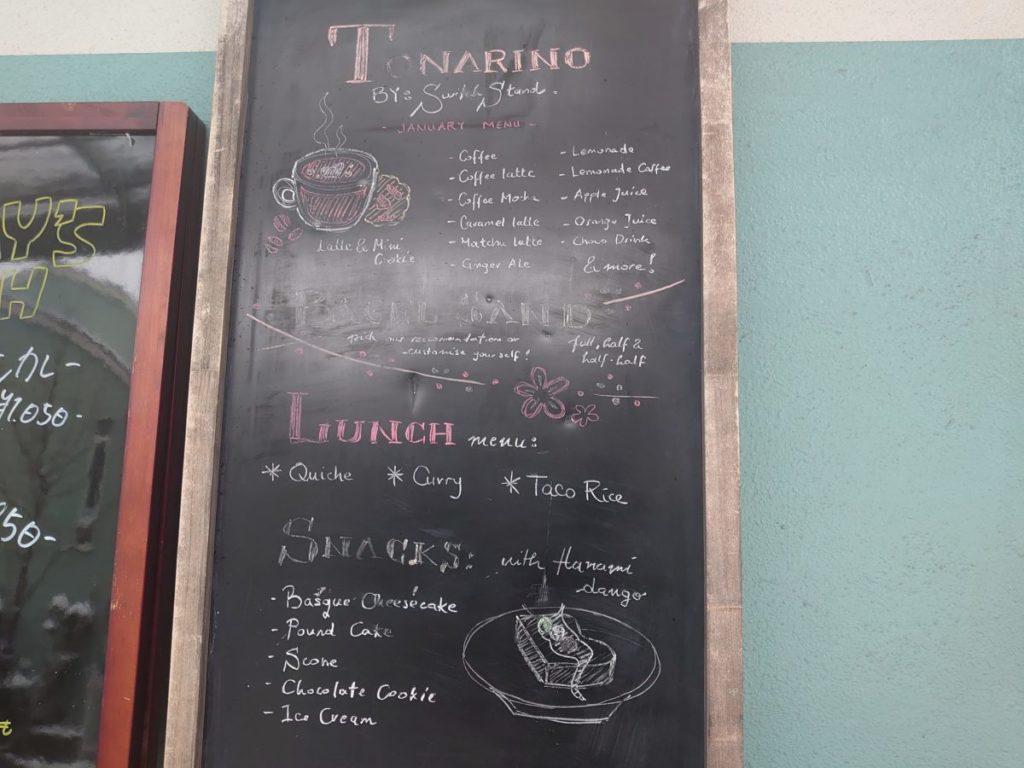 TONARINO
BY: Switch Stand.
- JANUARY MENU -
- Coffee
- Coffee latte
- Coffee Mocha
- Caramel latte
- Matcha latte
- Ginger Ale
- Lemonade
- Lemonade Coffee
- Apple Juice
- Orange Juice
- Choco Drink
& more!
Latte & Mini
Cookie
BAGEL SAND
pick our recommendation or
customise yourself!
full, half &
half-half
LUNCH menu:
* Quiche * Curry * Taco Rice
SNACKS:
- Basque Cheesecake
- Pound Cake
- Scone
- Chocolate Cookie
- Ice Cream
with Hanami
dango
Y'S
H
カレー
¥1.050-
850-